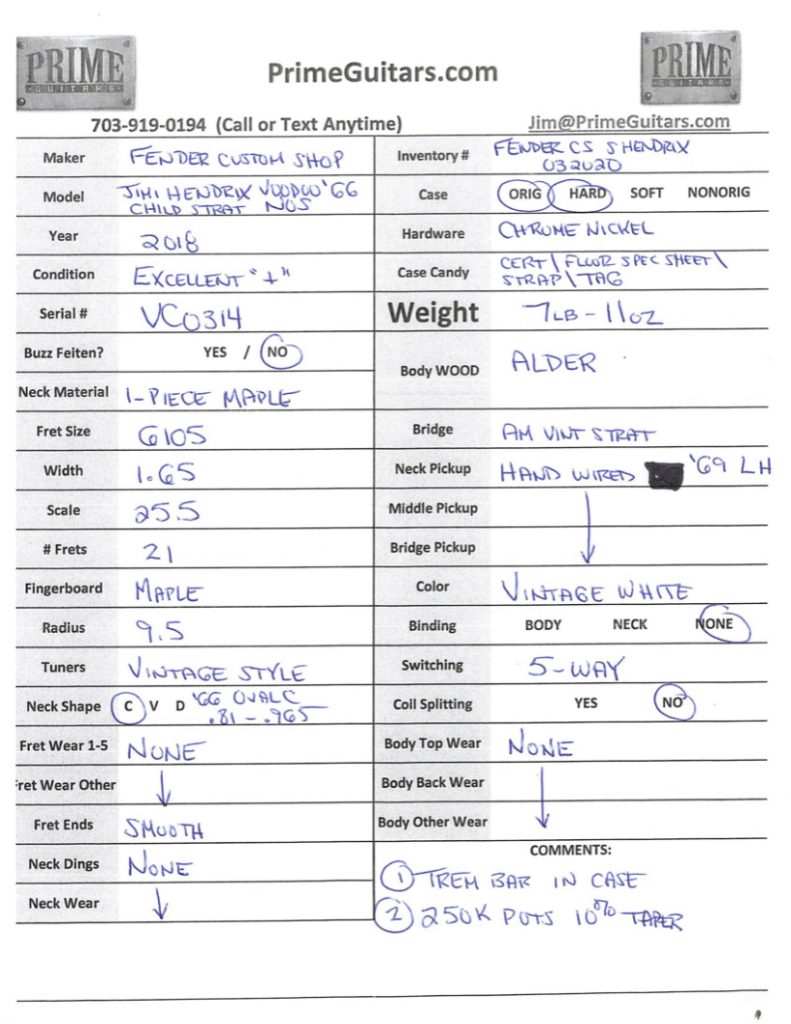 PRIME
GUITARS
PrimeGuitars.com
PRIME
GUITARS
703-919-0194 (Call or Text Anytime)
Jim@PrimeGuitars.com
Maker FENDER CUSTOM SHOP
Model JIMI HENDRIX VOODOO '66
CHILD STRAT NOS
Year 2018
Condition EXCELLENT "+"
Serial # VC0314
Buzz Feiten? YES / NO
Neck Material 1-PIECE MAPLE
Fret Size 6105
Width 1.65
Scale 25.5
# Frets 21
Fingerboard MAPLE
Radius 9.5
Tuners VINTAGE STYLE
Neck Shape C V D '66 OVAL C
.81 - .965
Fret Wear 1-5 NONE
Fret Wear Other ↓
Fret Ends SMOOTH
Neck Dings NONE
Neck Wear ↓
Inventory # FENDER CS S HENDRIX
032020
Case ORIG HARD SOFT NONORIG
Hardware CHROME NICKEL
Case Candy CERT \ FLOOR SPEC SHEET \
STRAP \ TAG
Weight 7LB - 11OZ
Body WOOD ALDER
Bridge AM VINT STRAT
Neck Pickup HAND WIRED '69 LH
Middle Pickup
Bridge Pickup ↓
Color VINTAGE WHITE
Binding BODY NECK NONE
Switching 5-WAY
Coil Splitting YES NO
Body Top Wear NONE
Body Back Wear
Body Other Wear ↓
COMMENTS:
① TREM BAR IN CASE
② 250K POTS 10% TAPER